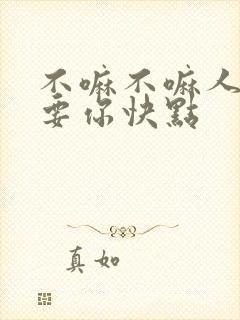 不嘛不嘛人
要你快點
真如